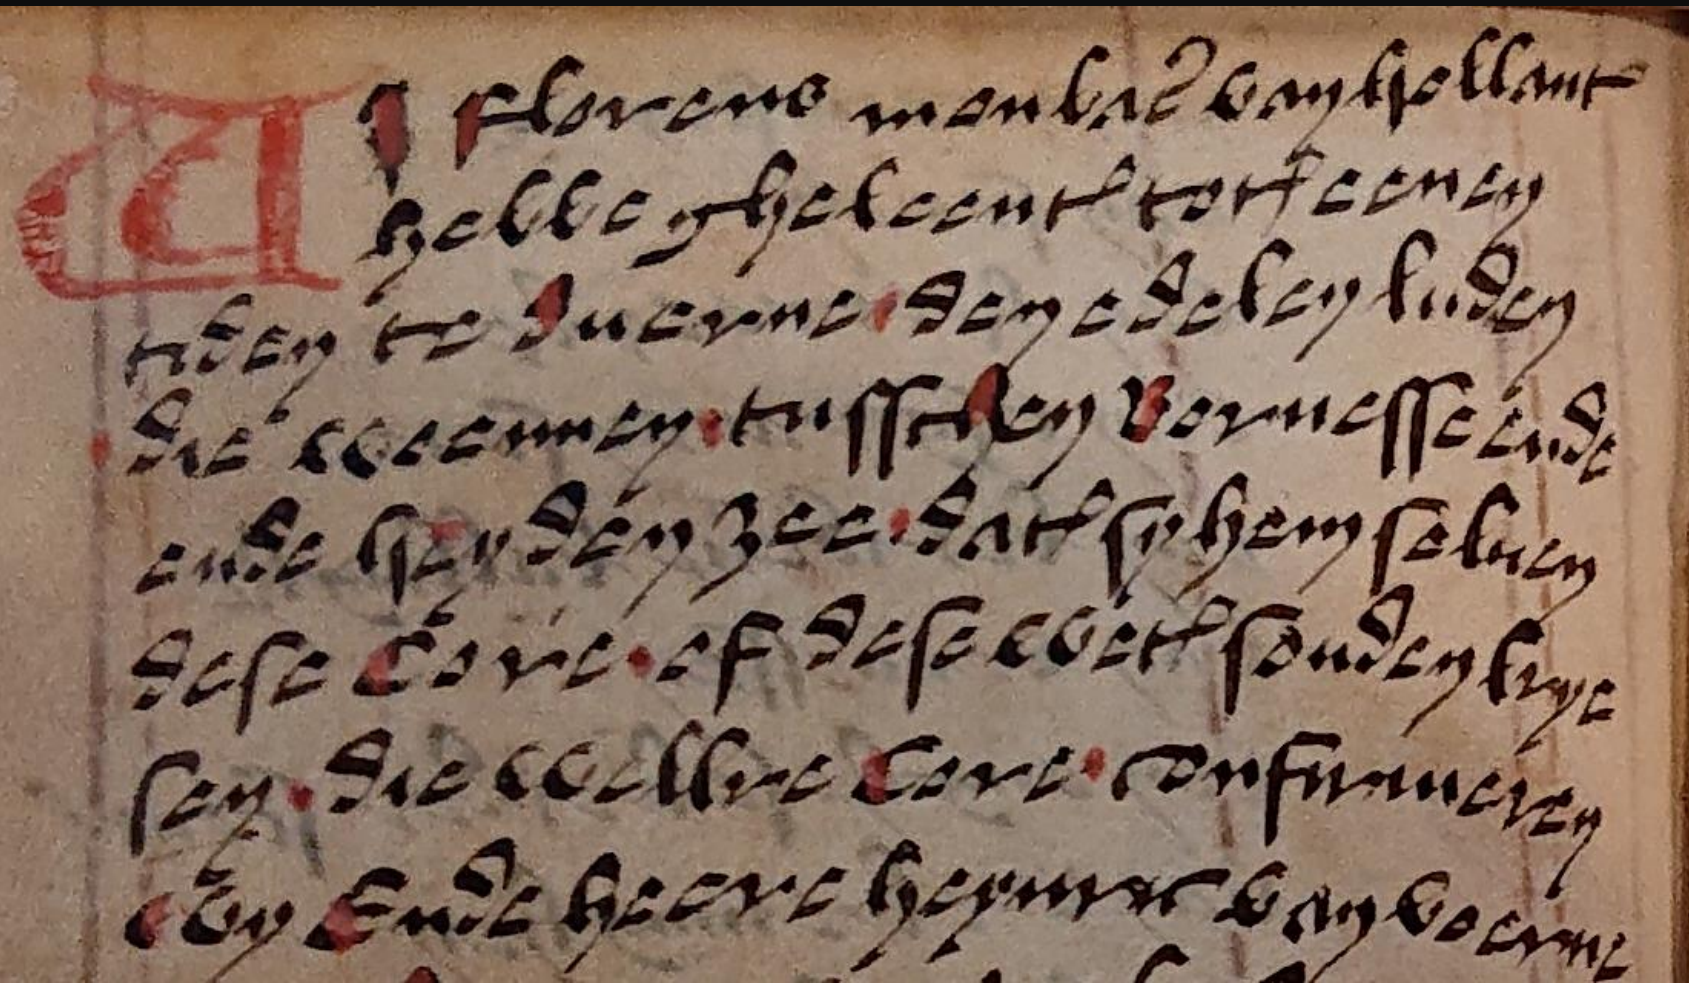 WI florens monbaer van hollant
hebbe gheleent tot eenen
tiden te Duerne . den edelen luden
die weenuen . tusschen bornesse ende
ende heyden zee . dat sy hem seluen
dese Core . of dese wet souden kye
sen . die welke Core . confirmeren
wy Ende heere heynric van voerne